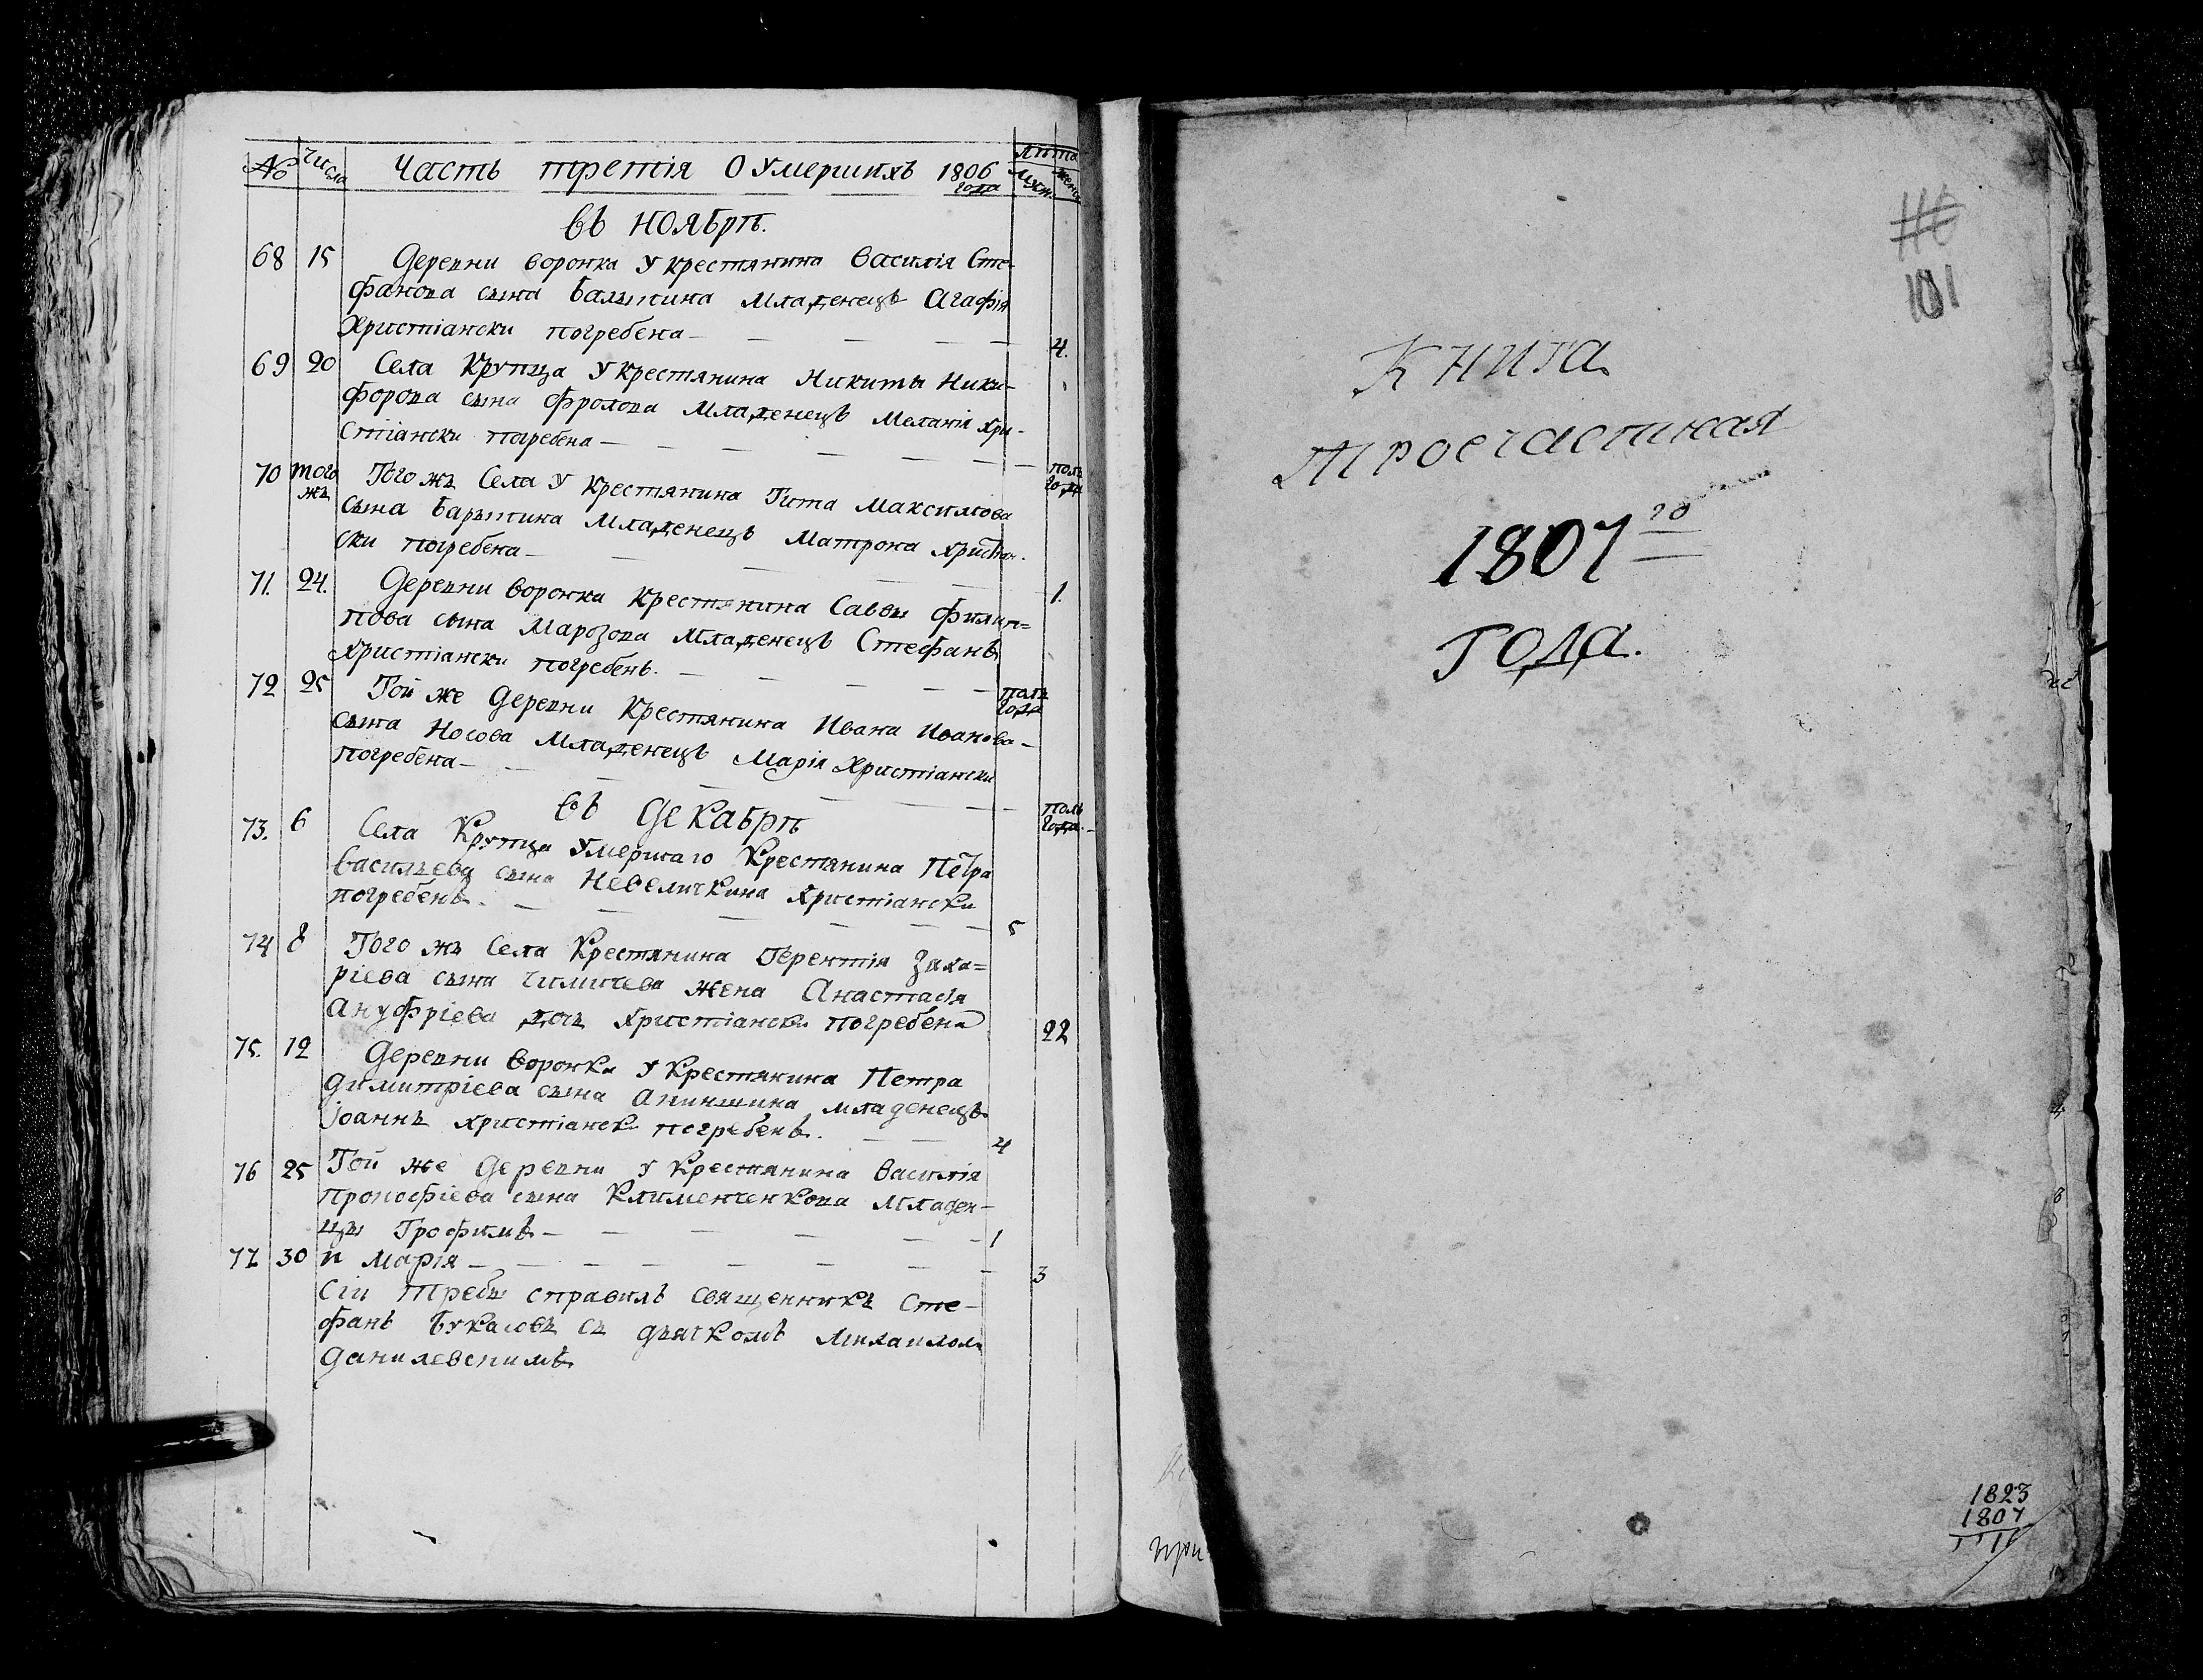 № Числа Часть третія О Умершихъ 1806 года Лѣта Муж. женс
въ ноябрѣ.
68 15 Деревни воронка У крестянина Василія Сте-
фанова сына балытина Младенецъ Агафія
Христіански погребена — 4.
69 20 Села Крупца У крестянина Никиты Ники-
форова сына Фролова Младенецъ Меланія Хри-
стіански погребена — полъ года
70 того жъ Того жъ Села У крестянина Тита Максимова
сына барытина Младенецъ Матрона Христіан-
ски погребена — 1.
71. 24. Деревни воронка Крестянина Саввы Филип=
пова сына Марозова Младенецъ Стефанъ
Христіански погребенъ. — полъ года
72 25 Той же Деревни Крестянина Ивана Иванова
сына Носова Младенецъ Марія Христіански
погребена — полъ года.
въ Декабрѣ
73. 6 Села Крупца Умершаго Крестянина Петра
васильева сына Невеличкина Христіански
погребенъ. — 5
74 8 Того жъ Села Крестянина Терентія Заха=
ріева сына жена Анастасія
Ануфріева дочь Христіански погребена 22
75. 12 Деревни Воронка У Крестянина Петра
Димитріева сына Апиншина младенецъ
Іоаннъ христіанск погребенъ. — 4
76 25 Той же Деревни У Крестянина Василія
Прокофіева сына Клименченкова Младен-
цы Трофимъ — 1
77 30 и Марія — 3
Сіи Требы справилъ Священникъ Сте-
фанъ Букасовъ съ дьячкомъ Михаиломъ
Данилевскимъ
при
116
101
Книга
Троечастная
1807го
Года.
1823
1807